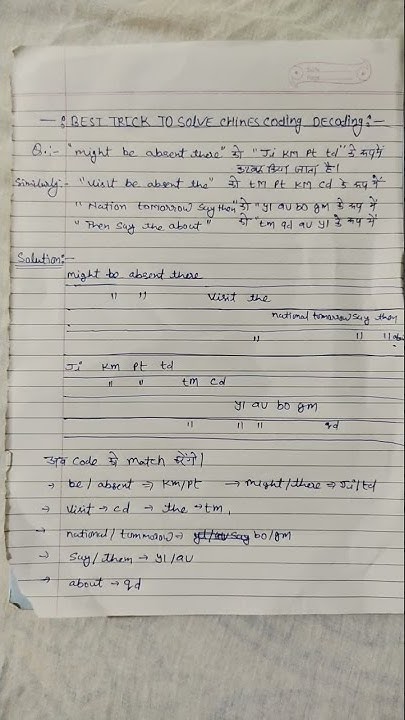 Date
Page
—: BEST TRICK TO SOLVE CHINES CODING DECODING:—
Q.:- "might be absent there" को "Ji KM Pt td" के रूप में
किया जाता है।
Similarly:- "Visit be absent the" को tM Pt KM Cd के रूप में
"Nation tomorrow Say then" को "yl av bo gm के रूप में
"Then Say the about" को "tm qd av yl के रूप में
Solution:-
might be absent there
" " Visit the
national tomorrow Say then
" " " abo
Ji KM Pt td
" " tm cd
yl av bo gm
" " " qd
अब Code से Match करेंगे।
→ be / absent ⇒ KM/Pt → might/there ⇒ Ji/td
→ Visit → cd → the → tm,
→ national / tommorow → bo/gm
→ Say / them → yl / av
→ about → qd